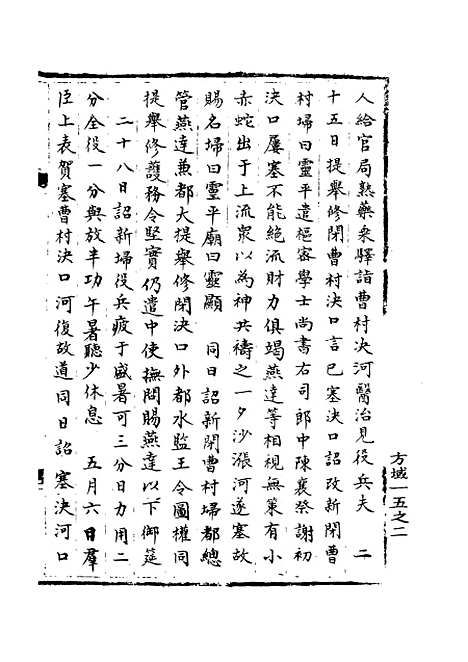 人給官局熟藥乘驛詣曹村決河醫治見役兵夫　二
十五日提舉修閉曹村決口言已塞決口詔改新閉曹
村埽曰靈平遣樞密學士尚書右司郎中陳襄祭謝初
決口屢塞不能絶流財力俱竭燕達等相視無策有小
赤蛇出于上流衆以為神共禱之一夕沙漲河遂塞故
賜名埽曰靈平廟曰靈顯　同日詔新閉曹村埽都總
管燕達兼都大提舉修閉決口外都水監王令圖權同
提舉修護務令堅實仍遣中使撫問賜燕達以下御筵
二十八日詔新埽役兵疲于盛暑可三分日力用二
分全役一分與放半功午暑聽少休息　五月六日羣
臣上表賀塞曹村決口河復故道同日詔塞決河口
方域一五之二